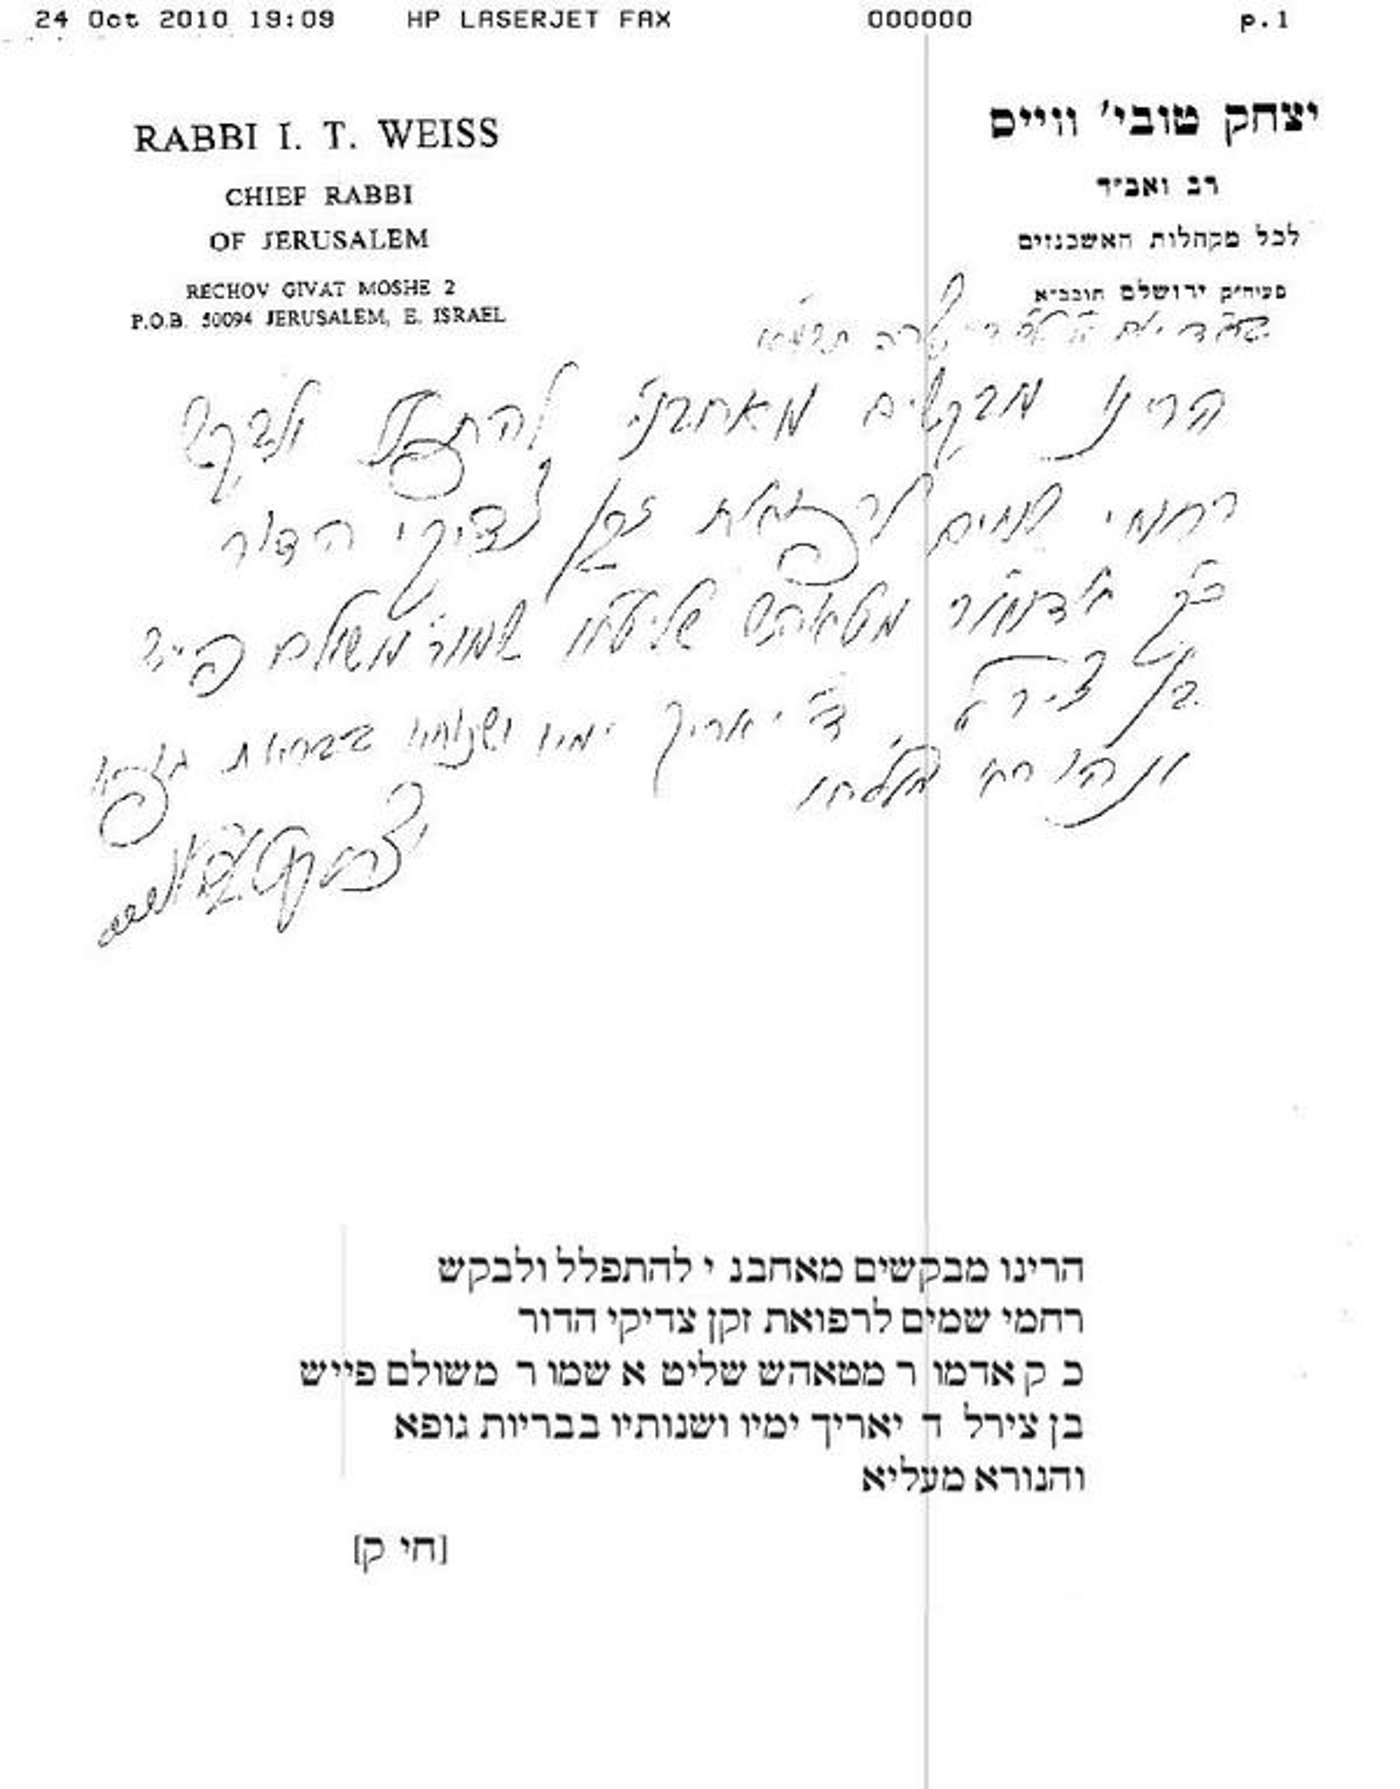 24 Oct 2010 19:09 HP LASERJET FAX 000000 p.1
RABBI I. T. WEISS
CHIEF RABBI
OF JERUSALEM
RECHOV GIVAT MOSHE 2
P.O.B. 50094 JERUSALEM, E. ISRAEL
יצחק טובי' ווייס
רב ואב"ד
לכל מקהלות האשכנזים
פעיה"ק ירושלם תובב"א
הרינו מבקשים מאחבנ"י להתפלל ולבקש
רחמי שמים לרפואת זקן צדיקי הדור
כ"ק אדמו"ר מטאהש שליט"א שמו"ר משולם פייש
בן צירל, ד' יאריך ימיו ושנותיו בבריאות גופא
ונהורא מעליא
הרינו מבקשים מאחבנ י להתפלל ולבקש
רחמי שמים לרפואת זקן צדיקי הדור
כ ק אדמו ר מטאהש שליט א שמו ר משולם פייש
בן צירל ד יאריך ימיו ושנותיו בבריות גופא
והנורא מעליא
[חי ק]